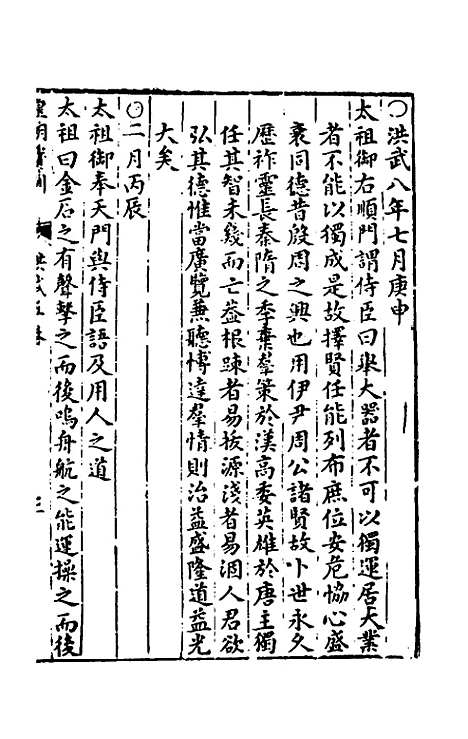 〇洪武八年七月庚申
太祖御右順門謂侍臣曰舉大器者不可以獨運居大業
者不能以獨成是故擇賢任能列布庶位安危恊心盛
衰同德昔殷周之興也用伊尹周公諸賢故卜世永久
歷祚靈長秦隋之季棄羣策於漢高委英雄於唐主獨
任其智未幾而亡葢根踈者易拔源淺者易涸人君欲
弘其德惟當廣覽兼聽博達羣情則治益盛隆道益光
大矣
〇二月丙辰
太祖御奉天門與侍臣語及用人之道
太祖曰金石之有聲擊之而後鳴舟航之能運操之而後
皇明寶訓 洪武五卷 三